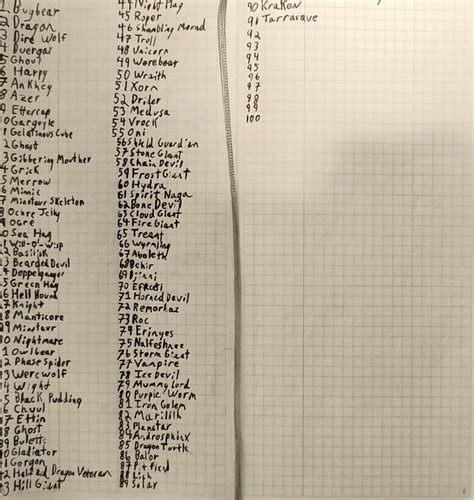 1. Bugbear
2 Dragon
3 Dire Wolf
4 Duergar
5 Ghoul
6 Harpy
7 Ankheg
8 Azer
9 Ettercap
10 Gargoyle
1 Gelatinous Cube
2 Ghost
3 Gibbering Mouther
4 Grick
5 Merrow
6 Mimic
7 Minotaur Skeleton
8 Ochre Jelly
9 Ogre
20 Sea Hag
1 Will-O'-Wisp
22 Basilisk
3 Bearded Devil
4 Doppelganger
5 Green Hag
6 Hell Hound
7 Knight
8 Manticore
29 Minotaur
30 Nightmare
1 Owlbear
2 Phase Spider
3 Werewolf
4 Wight
5 Black Pudding
6 Chuul
7 Ettin
38 Ghost
39 Bulette
40 Gladiator
41 Gorgon
42 Half-red Dragon Veteran
43 Hill Giant
44 Night Hag
45 Roper
46 Shambling Mound
47 Troll
48 Unicorn
49 Wereboar
50 Wraith
51 Xorn
52 Drider
53 Medusa
54 Vrock
55 Oni
56 Shield Guardian
57 Stone Giant
58 Chain Devil
59 Frost Giant
60 Hydra
61 Spirit Naga
62 Bone Devil
63 Cloud Giant
64 Fire Giant
65 Treant
66 Wyrmling
67 Aboleth
68 Behir
69 Djinni
70 Efreeti
71 Horned Devil
72 Remorhaz
73 Roc
74 Erinyes
75 Nalfeshnee
76 Storm Giant
77 Vampire
78 Ice Devil
79 Mummy Lord
80 Purple Worm
81 Iron Golem
82 Marilith
83 Planetar
84 Androsphinx
85 Dragon Turtle
86 Balor
87 Pit fiend
88 Lich
89 Solar
90 Kraken
91 Tarrasque
92
93
94
95
96
97
98
99
100